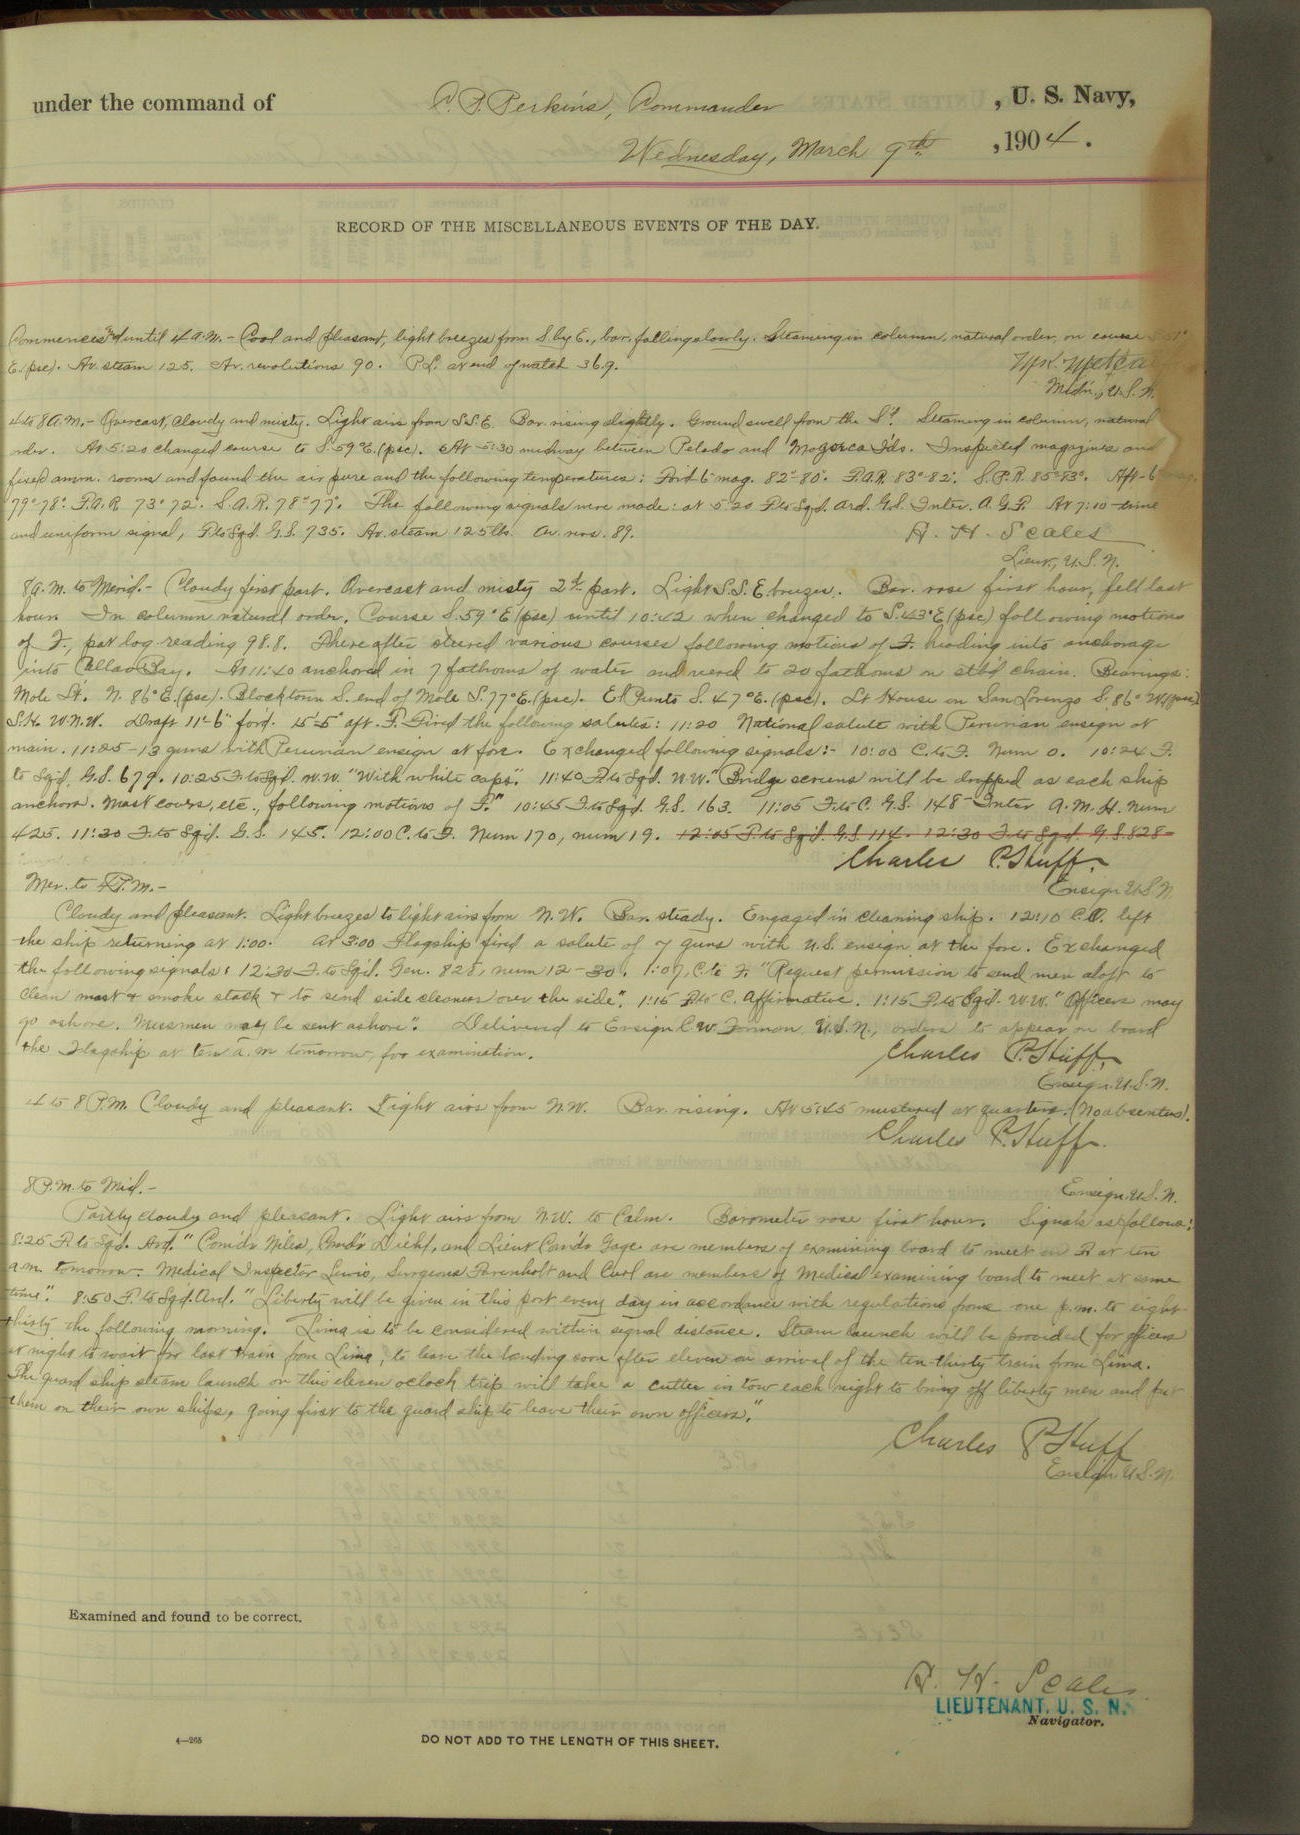 under the command of C. P. Perkins, Commander, U. S. Navy,
Wednesday, March 9th, 1904.
RECORD OF THE MISCELLANEOUS EVENTS OF THE DAY.
Commences and until 4 A.M. - Cool and pleasant, light breezes from S. by E., bar. falling slowly. Steaming in column, natural order, on course
E. (psc). Av. steam 125. Av. revolutions 90. P.L. at end of watch 36.9.
Midn., U.S.N.
4 to 8 A.M. - Overcast, cloudy and misty. Light airs from S.S.E. Bar. rising slightly. Ground swell from the Sd. Steaming in column, natural
order. At 5:20 changed course to S. 59° E. (psc). At 5:30 midway between Pelado and Mazorca Ids. Inspected magazines and
fixed amm. rooms and found the air pure and the following temperatures: Ford 6" mag. 82°-80°. F.A.R. 83°-82°. S.P.R. 85°-83°. Aft-6"
79°-78°. P.A.R. 73°-72°. S.A.R. 78°-77°. The following signals were made: at 5:20 F. to Sqd. Ard. G.S. Inter. A.G.P. At 7:10 time
and uniform signal, F. to Sqd. G.S. 735. Av. steam 125 lbs. Av. revs. 89.
A. H. Scales
Lieut., U.S.N.
8 A.M. to Merid. - Cloudy first part. Overcast and misty 2d part. Light S.S.E. breezes. Bar. rose first hour, fell last
hour. In column natural order. Course S. 59° E (psc) until 10:42 when changed to S. 43° E (psc) following motions
of F., pat log reading 98.8. Thereafter steered various courses following motions of F. heading into anchorage
into Callao Bay. At 11:40 anchored in 7 fathoms of water and veered to 20 fathoms on stb'd chain. Bearings:
Mole Lt. N. 86° E. (psc). Blocktown S. end of Mole S. 77° E. (psc). El Punto S. 47° E. (psc). Lt House on San Lorenzo S. 86° W (psc)
S.H. W.N.W. Draft 11'-6" for'd. 15'-5" aft. F. fired the following salutes: 11:20 National salute with Peruvian ensign at
main. 11:25 - 13 guns with Peruvian ensign at fore. Exchanged following signals:- 10:00 C. to F. Num 0. 10:24 F.
to Sqd. G.S. 679. 10:25 F. to Sqd. W.W. "With white caps". 11:40 F. to Sqd. W.W. "Bridge screens will be dropped as each ship
anchors. Mast covers, etc., following motions of F." 10:45 F. to Sqd. G.S. 163. 11:05 F. to C. G.S. 148 - Inter A.M.H. Num
425. 11:30 F. to Sqd. G.S. 145. 12:00 C. to F. Num 170, num 19. 12:05 F. to Sqd. G.S. 114. 12:30 F. to Sqd. G.S. 828
Charles P. Huff,
Ensign U.S.N.
Mer. to 4 P.M. -
Cloudy and pleasant. Light breezes to light airs from N.W. Bar. steady. Engaged in cleaning ship. 12:10 C.O. left
the ship returning at 1:00. At 3:00 Flagship fired a salute of 7 guns with U.S. ensign at the fore. Exchanged
the following signals: 12:30 F. to Sqd. Gen. 828, num 12-30. 1:07, C. to F. "Request permission to send men aloft to
clean mast & smoke stack & to send side cleaners over the side". 1:15 F. to C. Affirmative. 1:15 F. to Sqd. W.W. "Officers may
go ashore. Messmen may be sent ashore". Delivered to Ensign C. W. U.S.N., orders to appear on board
the Flagship at ten a.m. tomorrow, for examination.
Charles P. Huff,
Ensign, U.S.N.
4 to 8 P.M. Cloudy and pleasant. Light airs from N.W. Bar. rising. At 5:45 mustered at quarters. (No absentees).
Charles P. Huff.
Ensign, U.S.N.
8 P.M. to Mid. -
Partly cloudy and pleasant. Light airs from N.W. to Calm. Barometer rose first hour. Signals as follows:
8:25 F. to Sqd. Ard. "Comd'r Niles, Comd'r Diehl, and Lieut Comd'r Gage are members of examining board to meet on F. at ten
a.m. tomorrow. Medical Inspector Lewis, Surgeons Farenholt and Curl are members of Medical examining board to meet at same
time". 8:50 F. to Sqd. Ard. "Liberty will be given in this port every day in accordance with regulations from one p.m. to eight
thirty the following morning. Lima is to be considered within signal distance. Steam launch will be provided for officers
at night to wait for last train from Lima, to leave the landing soon after eleven on arrival of the ten-thirty train from Lima.
The guard ship steam launch on this eleven oclock trip will take a cutter in tow each night to bring off liberty men and put
them on their own ships, going first to the guard ship to leave their own officers."
Charles P. Huff
Ensign U.S.N.
Examined and found to be correct.
A. H. Scales
LIEUTENANT, U. S. N.
Navigator.
4—265
DO NOT ADD TO THE LENGTH OF THIS SHEET.